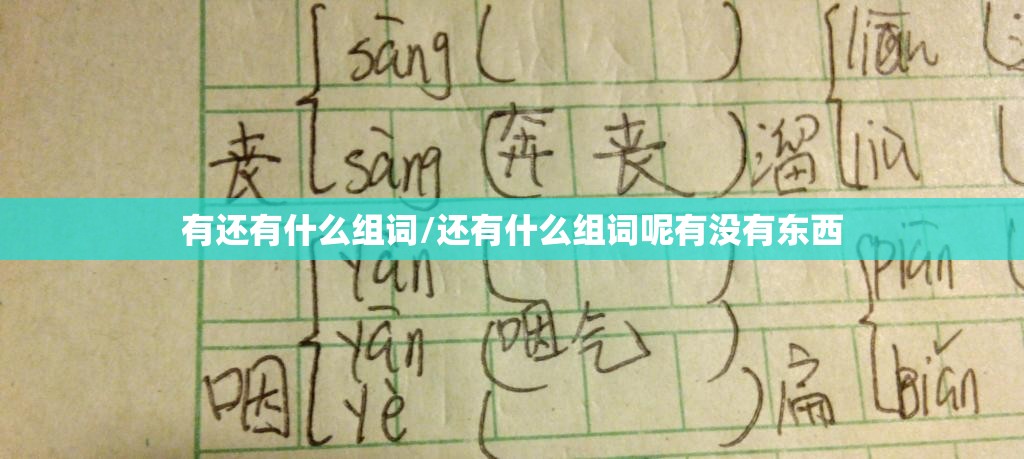 sāng ( )
丧 sāng (奔丧) 溜 liū
有还有什么组词/还有什么组词呢有没有东西
yàn ( ) piān
yān (咽气)
咽 yè ( ) 扁 biǎn